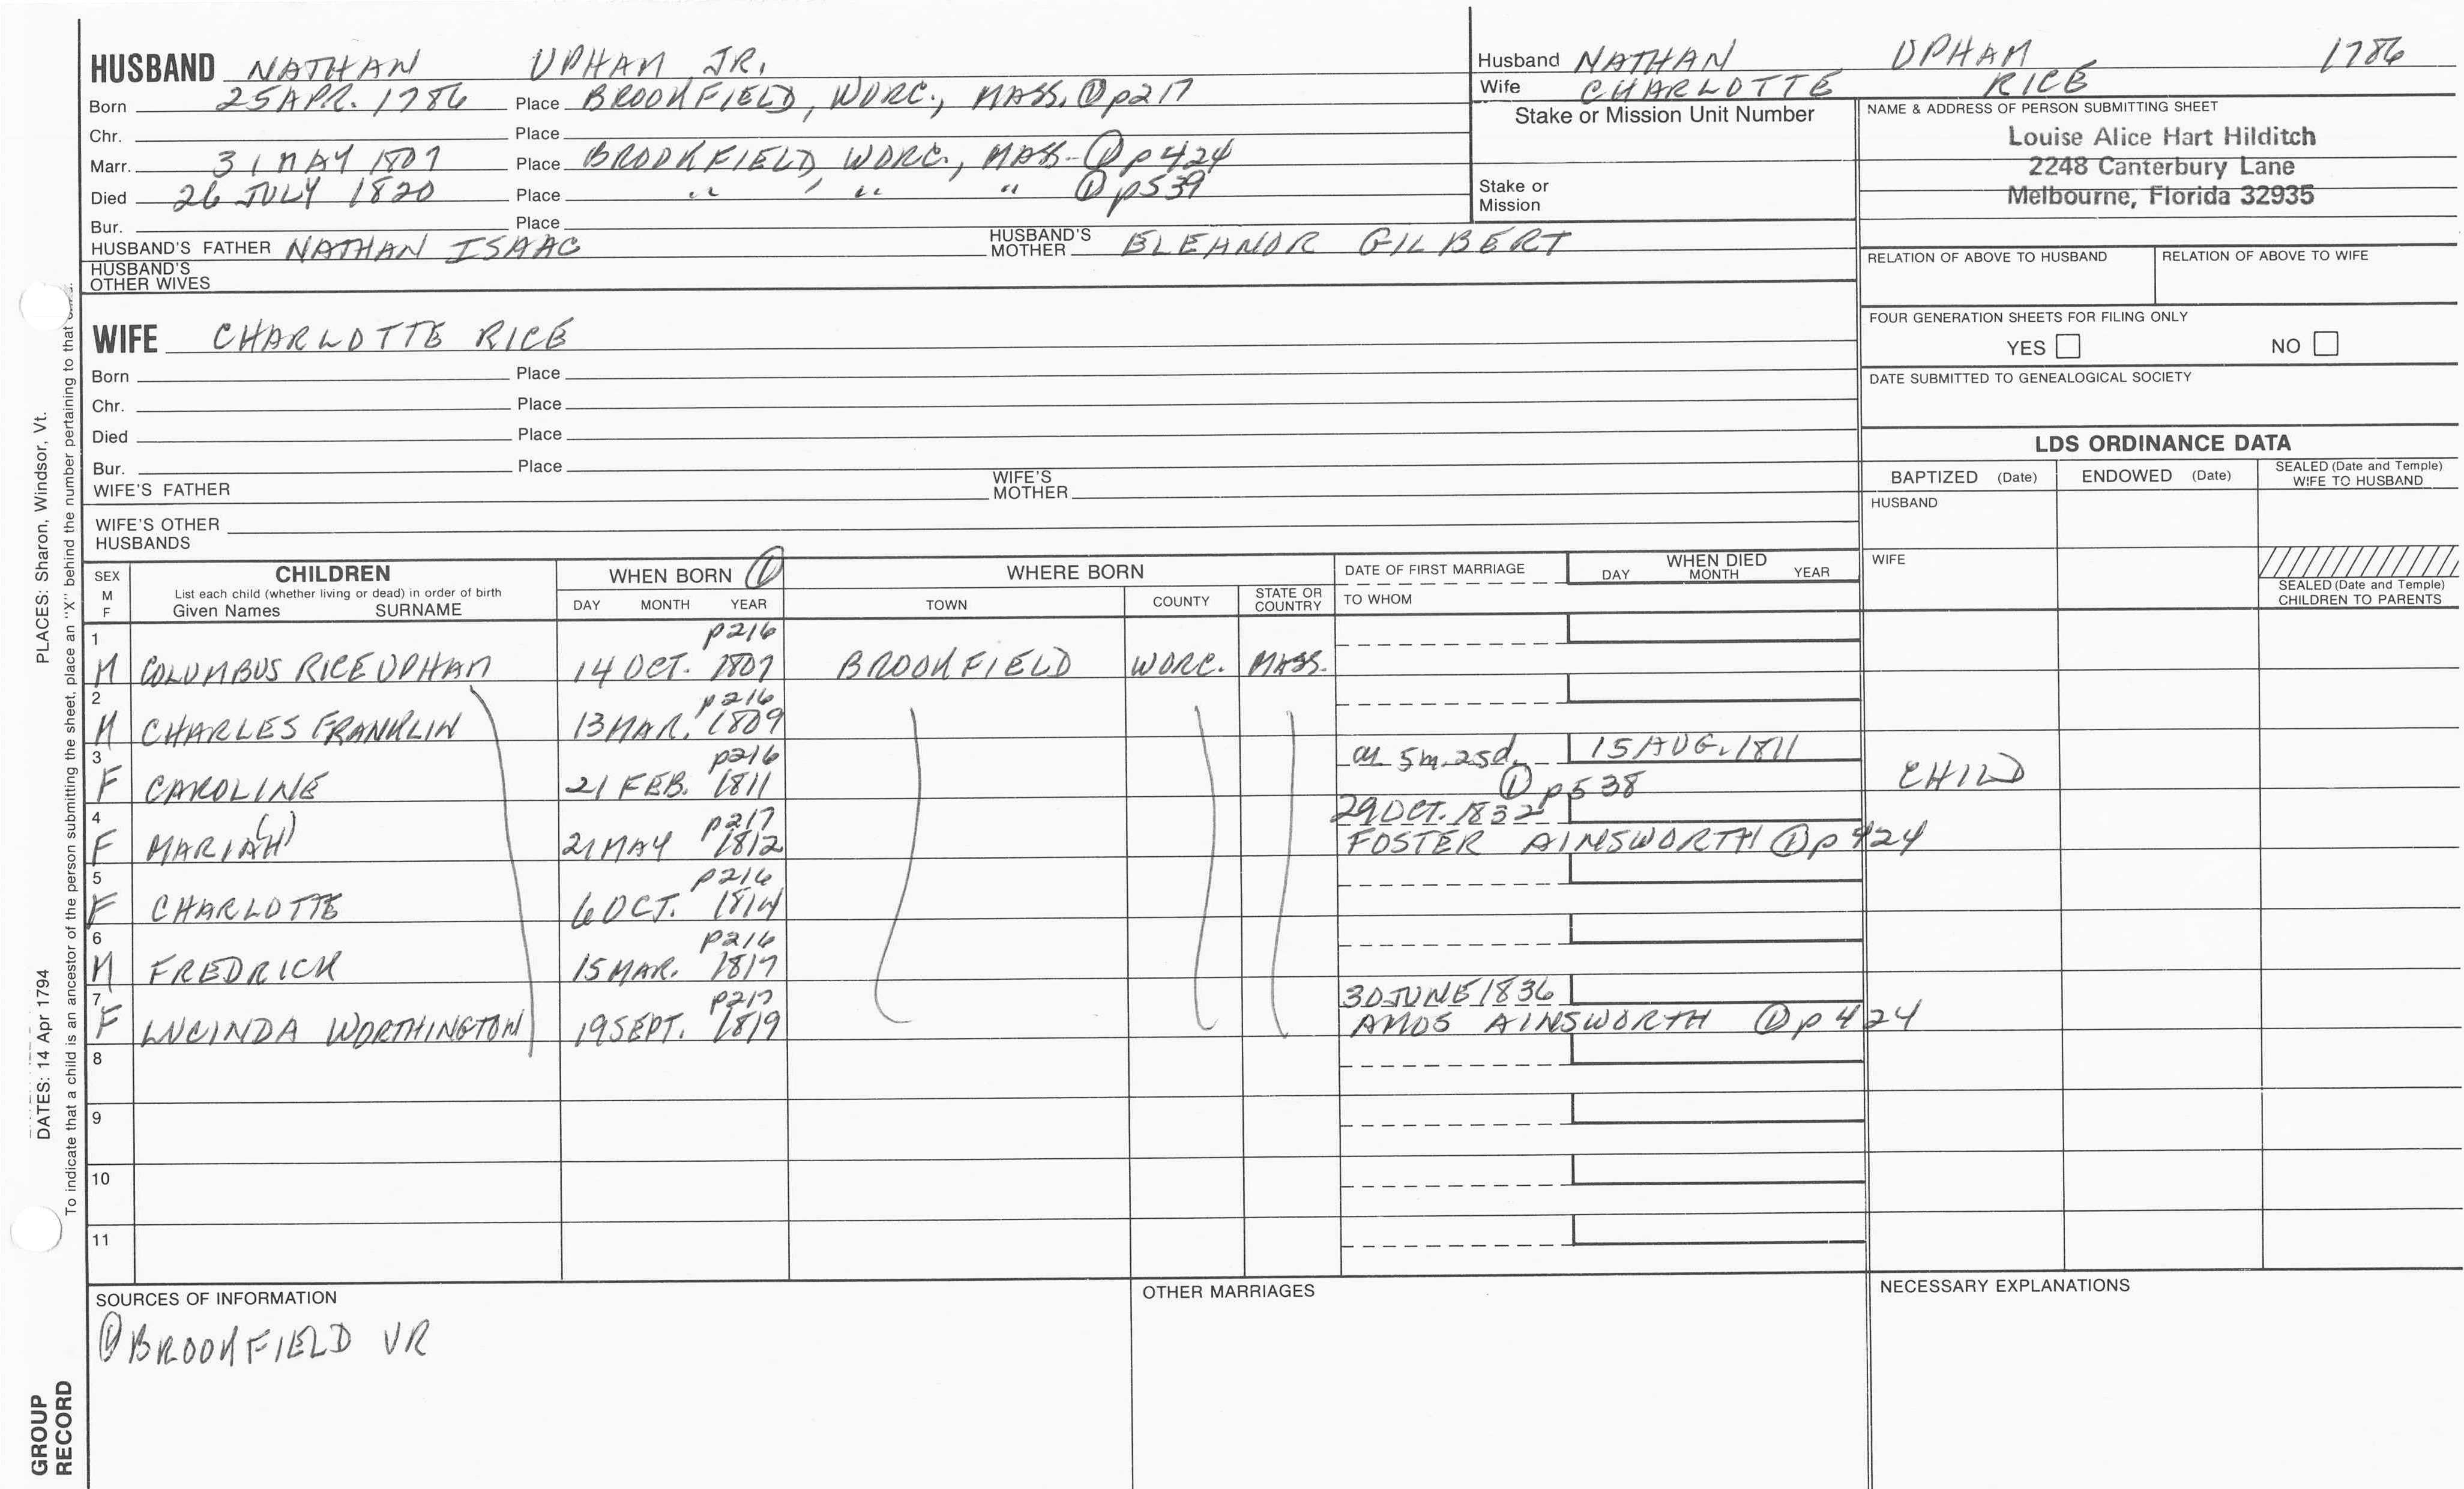 HUSBAND NATHAN UPHAM JR.
Born 25 APR. 1786 Place BROOKFIELD, WORC., MASS. ① p217
Chr. Place
Marr. 31 MAY 1807 Place BROOKFIELD, WORC., MASS - ① p424
Died 26 JULY 1820 Place " , " " ① p539
Bur. Place
HUSBAND'S FATHER NATHAN ISAAC HUSBAND'S MOTHER ELEANOR GILBERT
HUSBAND'S OTHER WIVES
Husband NATHAN UPHAM 1786
Wife CHARLOTTE RICE
Stake or Mission Unit Number
Stake or Mission
NAME & ADDRESS OF PERSON SUBMITTING SHEET
Louise Alice Hart Hilditch
2248 Canterbury Lane
Melbourne, Florida 32935
RELATION OF ABOVE TO HUSBAND RELATION OF ABOVE TO WIFE
FOUR GENERATION SHEETS FOR FILING ONLY
YES NO
DATE SUBMITTED TO GENEALOGICAL SOCIETY
WIFE CHARLOTTE RICE
Born Place
Chr. Place
Died Place
Bur. Place
WIFE'S FATHER WIFE'S MOTHER
WIFE'S OTHER HUSBANDS
LDS ORDINANCE DATA
BAPTIZED (Date) ENDOWED (Date) SEALED (Date and Temple) WIFE TO HUSBAND
HUSBAND
WIFE
SEALED (Date and Temple) CHILDREN TO PARENTS
SEX M F
CHILDREN
List each child (whether living or dead) in order of birth
Given Names SURNAME
WHEN BORN ①
DAY MONTH YEAR
WHERE BORN
TOWN COUNTY STATE OR COUNTRY
DATE OF FIRST MARRIAGE
TO WHOM
WHEN DIED
DAY MONTH YEAR
1 p216
M COLUMBUS RICE UPHAM 14 OCT. 1807 BROOKFIELD WORC. MASS.
2 p216
M CHARLES FRANKLIN 13 MAR. 1809
3 p216 a 5m.25d. 15 AUG. 1811
F CAROLINE 21 FEB. 1811 ① p538 CHILD
4 p217 29 OCT. 1832
F MARIA(H) 21 MAY 1812 FOSTER AINSWORTH ① p424
5 p216
F CHARLOTTE 6 OCT. 1814
6 p216
M FREDRICK 15 MAR. 1817
7 p217 30 JUNE 1836
F LUCINDA WORTHINGTON 19 SEPT. 1819 AMOS AINSWORTH ① p424
8
9
10
11
SOURCES OF INFORMATION
① BROOKFIELD VR
OTHER MARRIAGES
NECESSARY EXPLANATIONS
PLACES: Sharon, Windsor, Vt.
DATES: 14 Apr 1794
To indicate that a child is an ancestor of the person submitting the sheet, place an "X" behind the number pertaining to that
GROUP RECORD